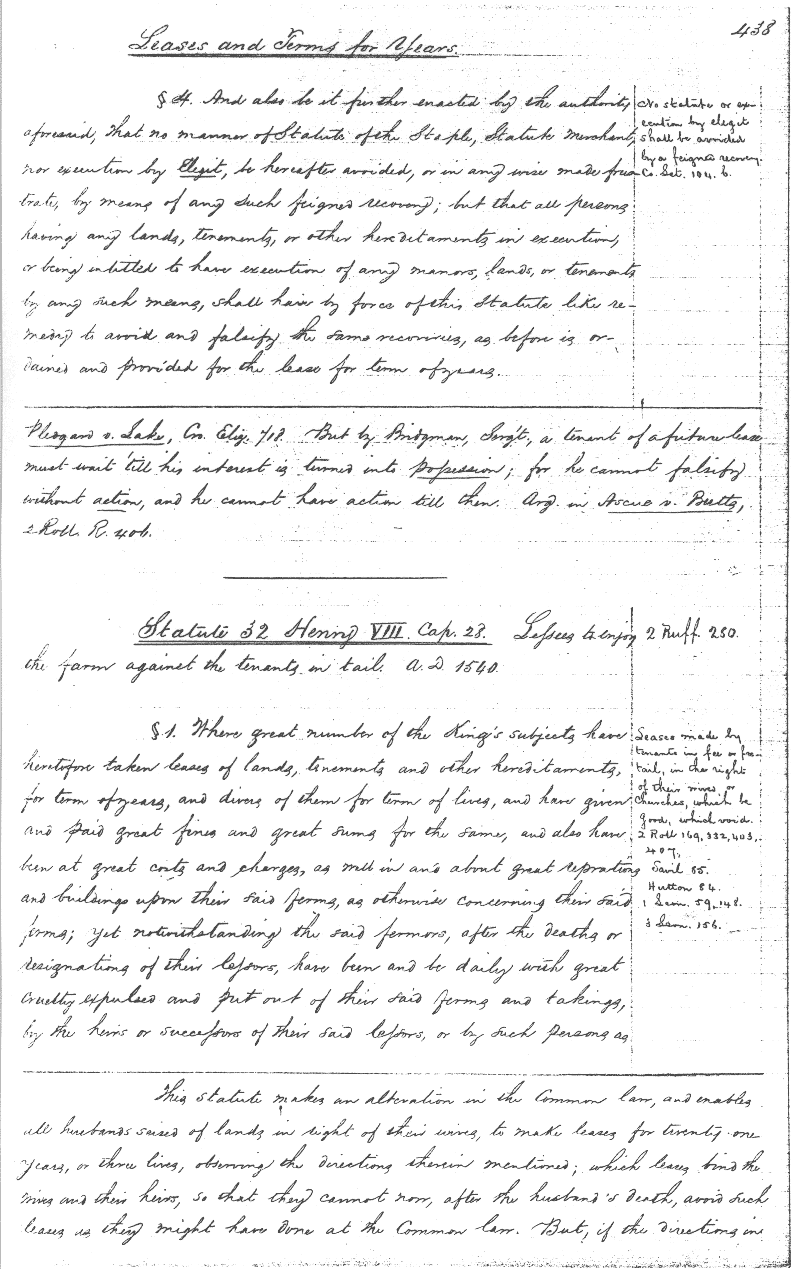 438
Leases and Terms for Years.
§ 4. And also be it further enacted by the authority
aforesaid, that no manner of Statute of the Staple, Statute Merchant,
nor execution by Elegit, be hereafter avoided, or in any wise made frus-
trate, by means of any such feigned recovery; but that all persons
having any lands, tenements, or other hereditaments in execution,
or being intitled to have execution of any manors, lands, or tenements
by any such means, shall have by force of this Statute like re-
medy to avoid and falsify the same recoveries, as before is or-
dained and provided for the lease for term of years.
No statute or ex-
ecution by elegit
shall be avoided
by a feigned recovery.
Co. Lit. 104. b.
Pledgard v. Lake, Cro. Eliz. 718. But by Bridgman, Serg't, a tenant of a future lease
must wait 'till his interest is turned into possession; for he cannot falsify
without action, and he cannot have action till then. Arg. in Ascue v. Butts,
2 Roll. R. 406.
Statute 32 Henry VIII. Cap. 28. Lessees to enjoy
the farm against the tenants in tail. A.D. 1540.
2 Ruff. 280.
§ 1. Where great number of the King's subjects have
heretofore taken leases of lands, tenements and other hereditaments,
for term of years, and divers of them for term of lives, and have given
and paid great fines and great sums for the same, and also have
been at great costs and charges, as well in and about great reprations
and buildings upon their said ferms, as otherwise concerning their said
ferms; yet notwithstanding the said fermors, after the deaths or
resignations of their lessors, have been and be daily with great
cruelty expulsed and put out of their said ferms and takings,
by the heirs or successors of their said lessors, or by such persons as
Leases made by
tenants in fee or fee-
tail, in the right
of their wives, or
Churches, which be
good, which void.
2 Roll 169, 332, 403,
407,
Savil 85.
Hutton 84.
1 Leon. 59, 148.
3 Leon. 156.
This statute makes an alteration in the Common law, and enables
all husbands seised of lands in right of their wives, to make leases for twenty-one
years, or three lives, observing the directions therein mentioned; which leases bind the
wives and their heirs, so that they cannot now, after the husband's death, avoid such
leases as they might have done at the Common law. But, if the directions in